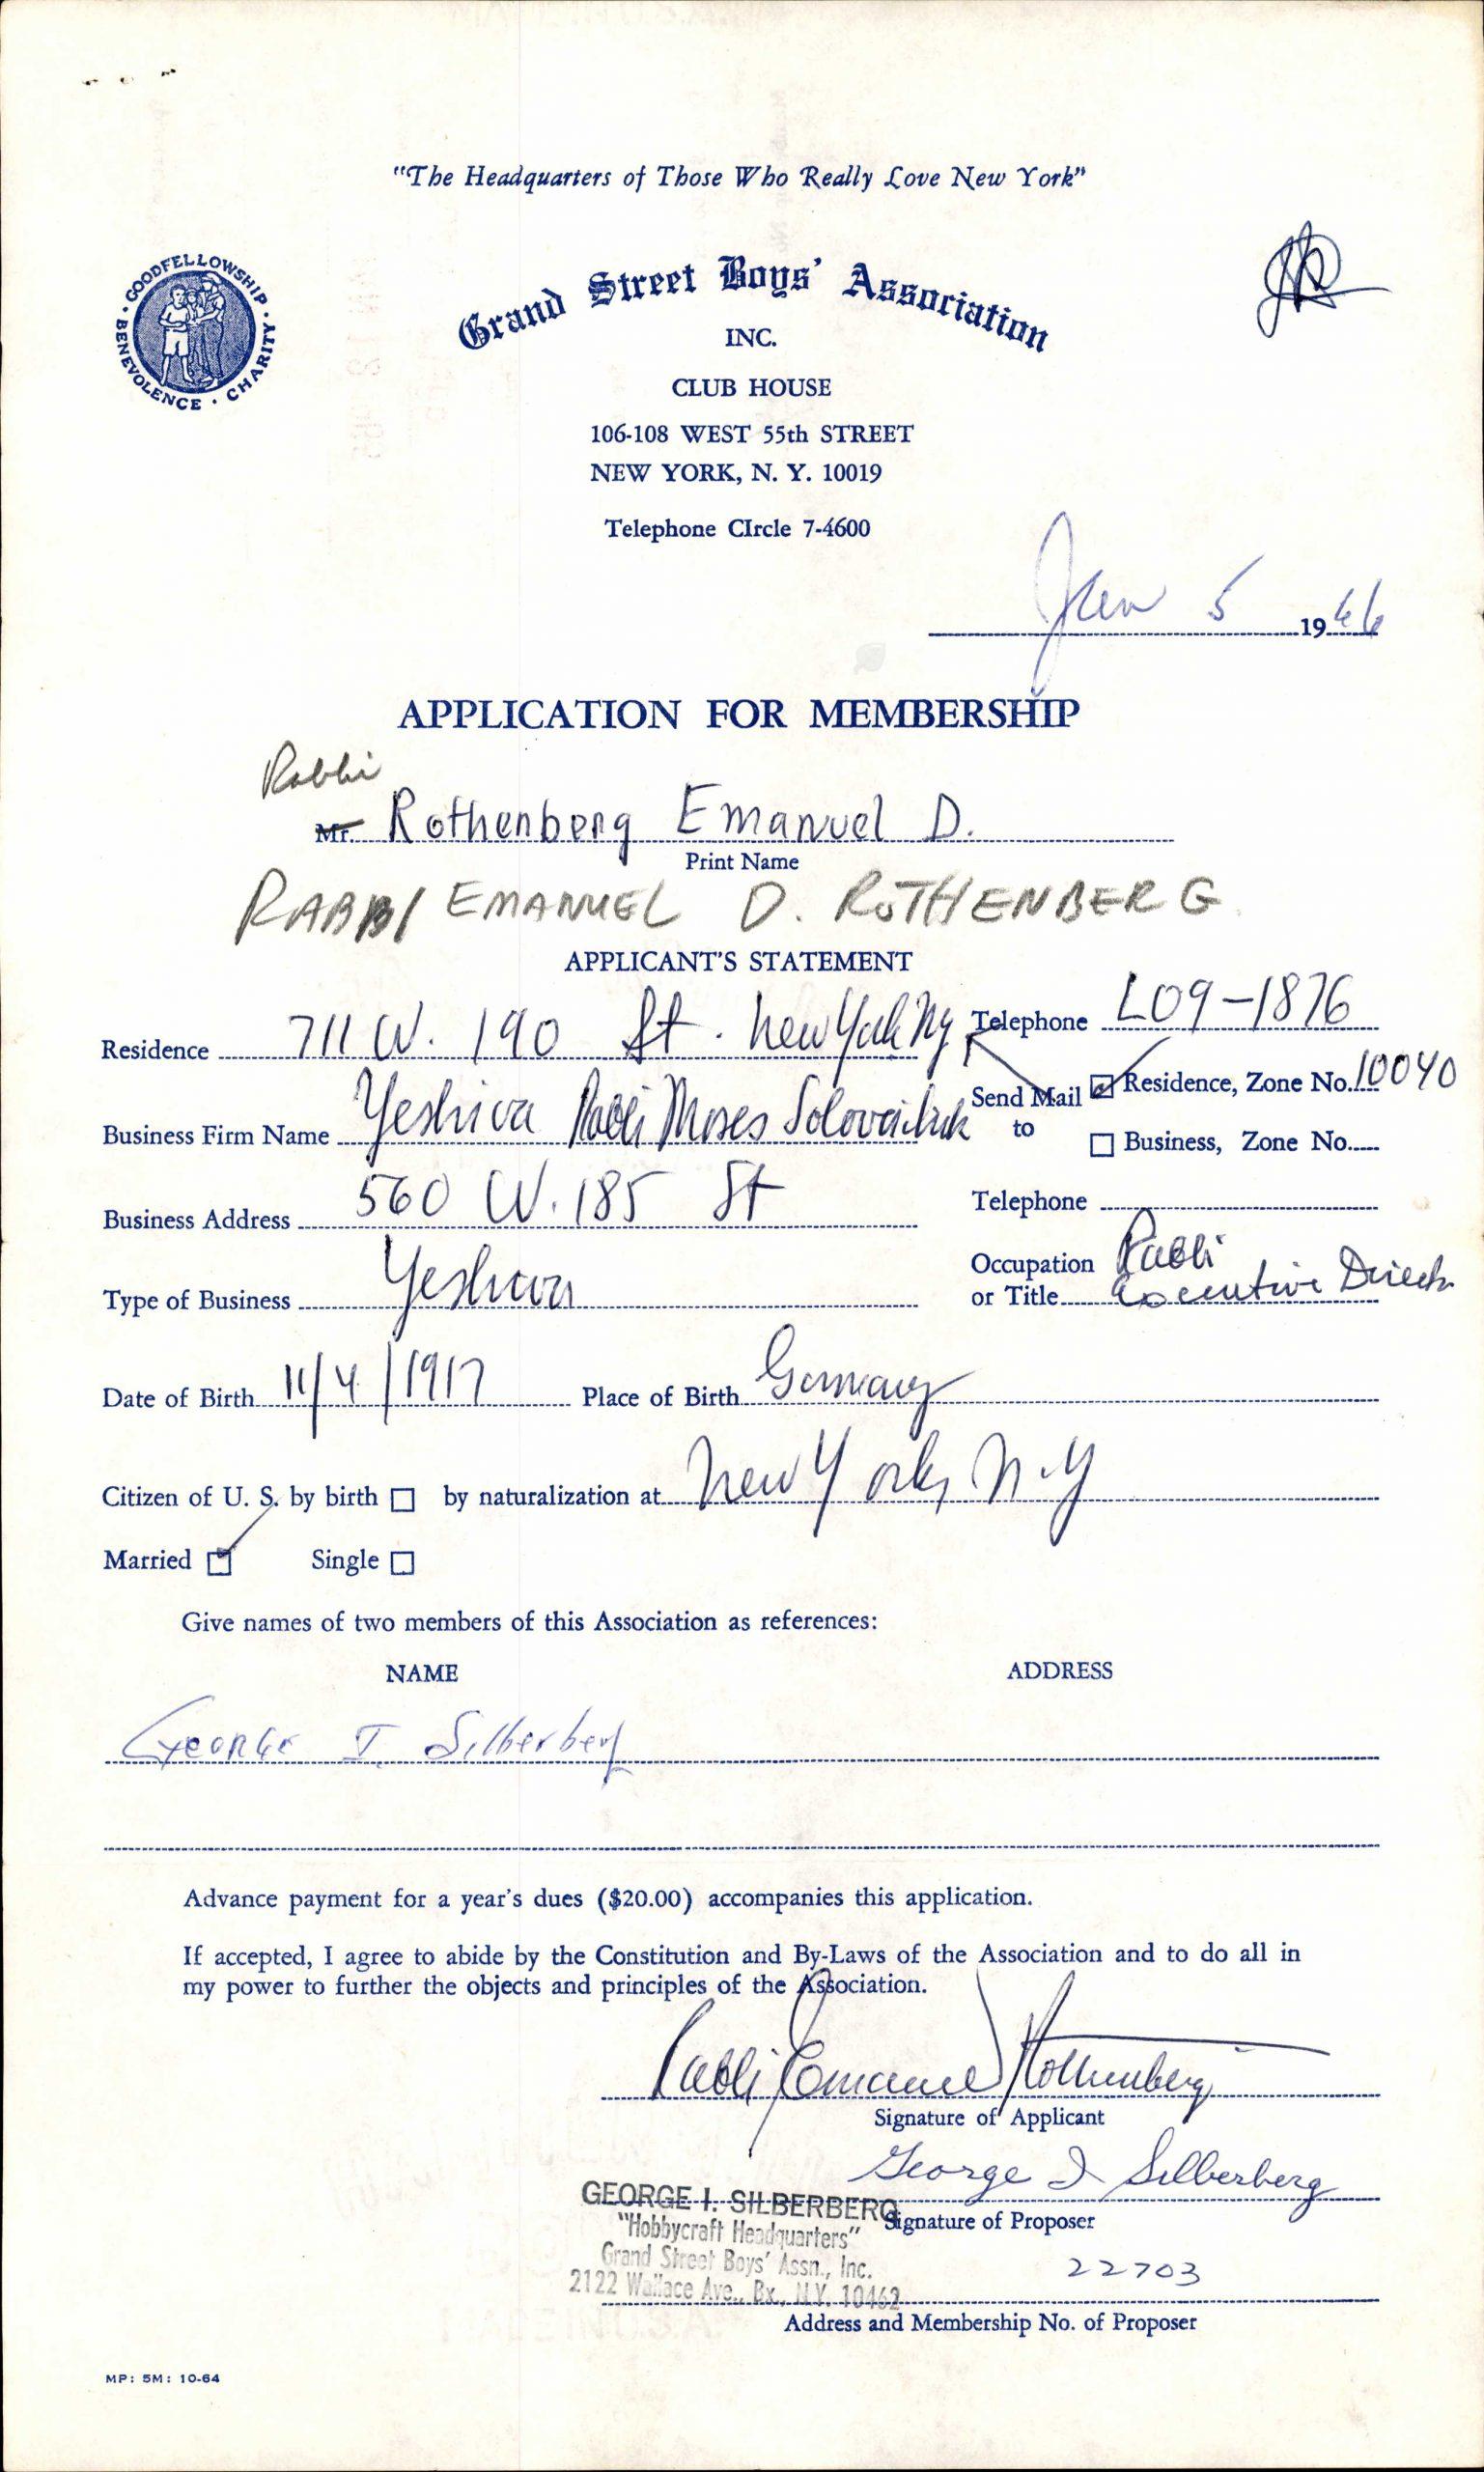 "The Headquarters of Those Who Really Love New York"
GOODFELLOWSHIP · CHARITY · BENEVOLENCE ·
Grand Street Boys' Association
INC.
CLUB HOUSE
106-108 WEST 55th STREET
NEW YORK, N. Y. 10019
Telephone CIrcle 7-4600
Jan 5 1966
APPLICATION FOR MEMBERSHIP
Rabbi
Mr. Rothenberg Emanuel D.
Print Name
RABBI EMANUEL D. ROTHENBERG
APPLICANT'S STATEMENT
Residence 711 W. 190 St. New York NY Telephone LO9-1876
Send Mail to Residence, Zone No. 10040
Business Firm Name Yeshiva Rabbi Moses Soloveichik
Business, Zone No.
Business Address 560 W. 185 St Telephone
Type of Business Yeshiva Occupation or Title Rabbi Executive Director
Date of Birth 11/4/1917 Place of Birth Germany
Citizen of U. S. by birth by naturalization at New York, N.Y
Married Single
Give names of two members of this Association as references:
NAME ADDRESS
George I. Silberberg
Advance payment for a year's dues ($20.00) accompanies this application.
If accepted, I agree to abide by the Constitution and By-Laws of the Association and to do all in
my power to further the objects and principles of the Association.
Rabbi Emanuel Rothenberg
Signature of Applicant
George I Silberberg
Signature of Proposer
GEORGE I. SILBERBERG
"Hobbycraft Headquarters"
Grand Street Boys' Assn., Inc.
2122 Wallace Ave., Bx., N.Y. 10462
22703
Address and Membership No. of Proposer
MP: 5M: 10-64